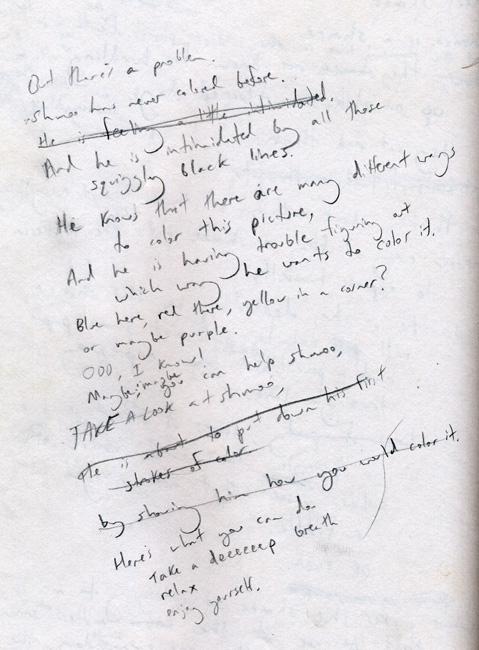 But there's a problem.
shmoo has never colored before.
He is feeling a little intimidated.
And he is intimidated by all those
squiggly black lines.
He knows that there are many different ways
to color this picture,
And he is having trouble figuring out
which way he wants to color it.
Blue here, red there, yellow in a corner?
or maybe purple.
OOO, I know!
Maybe, maybe you can help shmoo,
TAKE A LOOK at shmoo,
He is about to put down his first
strokes of color
by showing him how you would color it.
Here's what you can do.
Take a deeeeeep breath
relax
enjoy yourself.